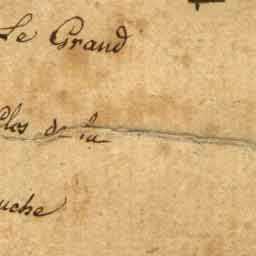 Le Grand
Clos de la
uche